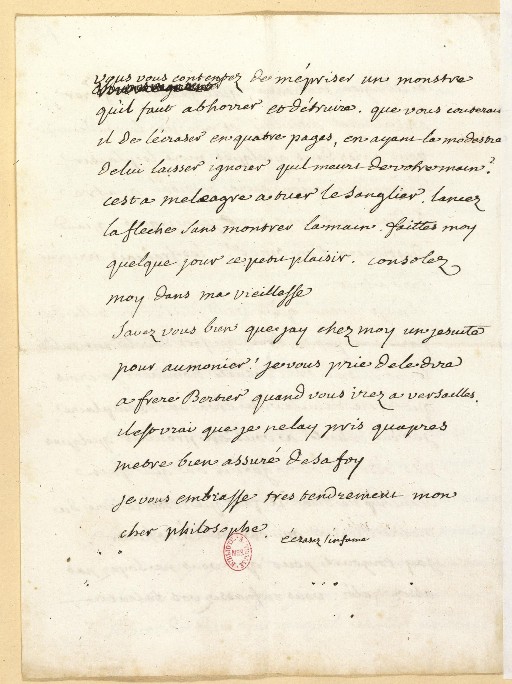 vous vous contentez de mépriser un monstre
qu'il faut abhorrer et détruire. que vous couterait
il de lécraser en quatre pages, en ayant la modestie
de lui laisser ignorer quil meurt de votre main?
cest a meleagre a tuer le sanglier. lancez
la fleche sans montrer la main. faittes moy
quelque jour ce petit plaisir. consolez
moy dans ma vieillesse
savez vous bien que jay chez moy un jesuite
pour aumonier! je vous prie de le dire
a frere Bertier quand vous irez a versailles.
il est vrai que je ne lay pris quapres
metre bien assuré de sa foy
je vous embrasse tres tendrement mon
cher philosophe.
écrasez l'infame